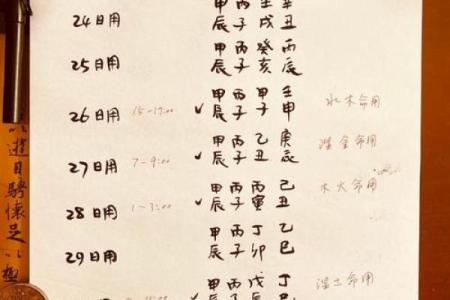 甲 丙 壬 辛
24日用
辰 子 戌 丑
甲 丙 癸 丙
25日用
辰 子 亥 辰
甲 丙 甲 壬
26日用 15-17:00 ✓ 水木命用
辰 子 子 申
甲 丙 乙 庚
27日用 7-9:00 ✓ 湿金命用
辰 子 丑 辰
甲 丙 丙 己
28日用 1-3:00 ✓ 木火命用
辰 子 寅 丑
甲 丙 丁 乙
29日用
辰 子 卯 巳
甲 丙 戊 丁
✓ 湿土命用
以遊目騁懷足以極